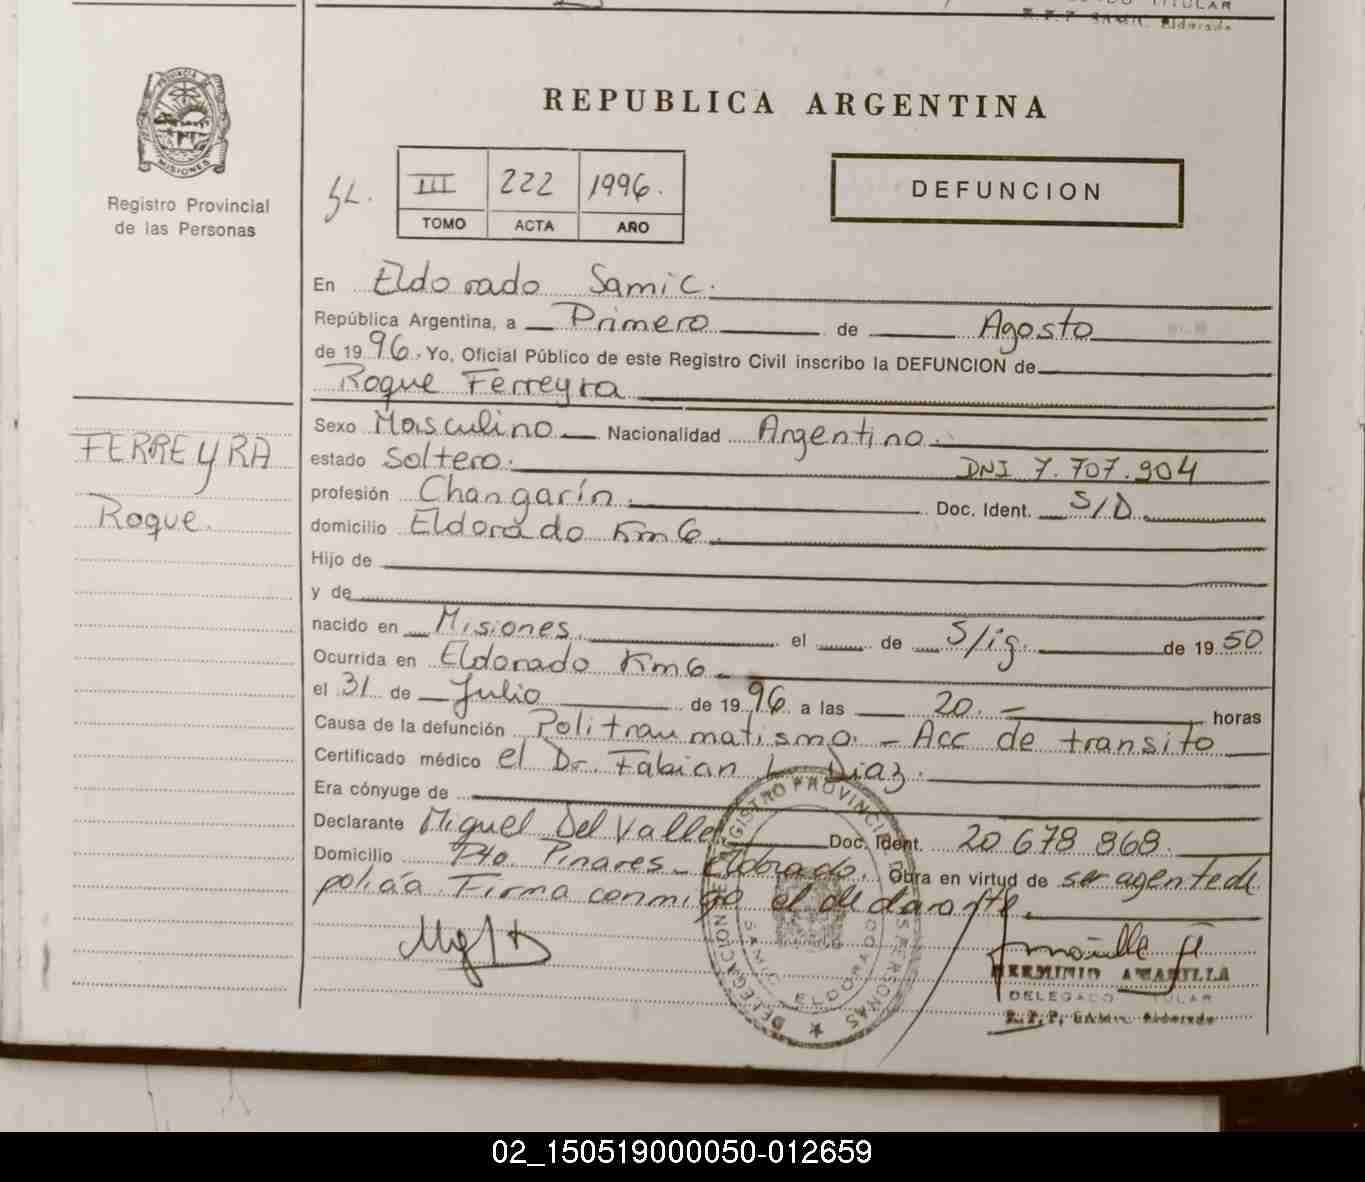 TITULAR
R.P.P. SAMIC. Eldorado
PROVINCIA DE
MISIONES
Registro Provincial
de las Personas
REPUBLICA ARGENTINA
III 222 1996.
TOMO ACTA AÑO
DEFUNCION
En Eldorado Samic.
República Argentina, a Primero de Agosto
de 1996. Yo, Oficial Público de este Registro Civil inscribo la DEFUNCION de
Roque Ferreyra
FERREYRA
Roque.
Sexo Masculino Nacionalidad Argentina.
estado Soltero. DNI 7.707.904
profesión Changarín. Doc. Ident. S/D
domicilio Eldorado Km6.
Hijo de
y de
nacido en Misiones. el de S/ig. de 1950
Ocurrida en Eldorado Km6
el 31 de Julio de 1996 a las 20.- horas
Causa de la defunción Politraumatismo. - Acc de transito
Certificado médico el Dr. Fabian L. Diaz.
Era cónyuge de
Declarante Miguel Del Valle Doc. Ident. 20 678 868.
Domicilio Pto. Pinares - Eldorado. Obra en virtud de ser agente de
policía Firma conmigo el declarante.
DELEGACION DE REGISTRO PROVINCIAL DE LAS PERSONAS
SAMIC ELDORADO
HERMINIO AMARILLA
DELEGADO TITULAR
R.P.P. SAMIC. Eldorado
02_150519000050-012659